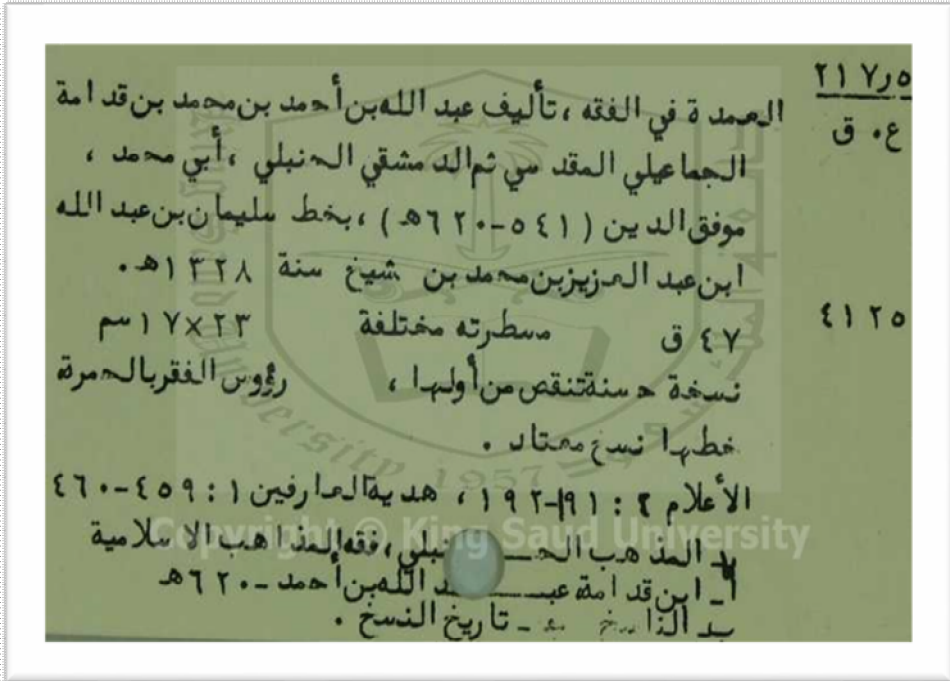 ٢١٧٫٥
العمدة في الفقه ، تأليف عبد الله بن أحمد بن محمد بن قدامة
ع٠ ق
الجماعيلي المقدسي ثم الدمشقي الحنبلي ، أبي محمد ،
موفق الدين ( ٥٤١-٦٢٠هـ ) ، بخط سليمان بن عبد الله
ابن عبد العزيز بن محمد بن شيخ سنة ١٣٢٨هـ .
٤٧ ق مسطرته مختلفة ٢٣×١٧سم
٤١٢٥
نسخة حسنة تنقص من أولها ، رؤوس الفقر بالحمرة
خطها نسخ معتاد .
الأعلام ٤ : ١٩١-١٩٢ ، هدية العارفين ١ : ٤٥٩-٤٦٠
Copyright © King Saud University
المذهب الحنبلي ، فقه المذاهب الاسلامية
أ- ابن قدامة عبد الله بن أحمد - ٦٢٠هـ
ب- الناسخ - تاريخ النسخ .
King Saud University
1957